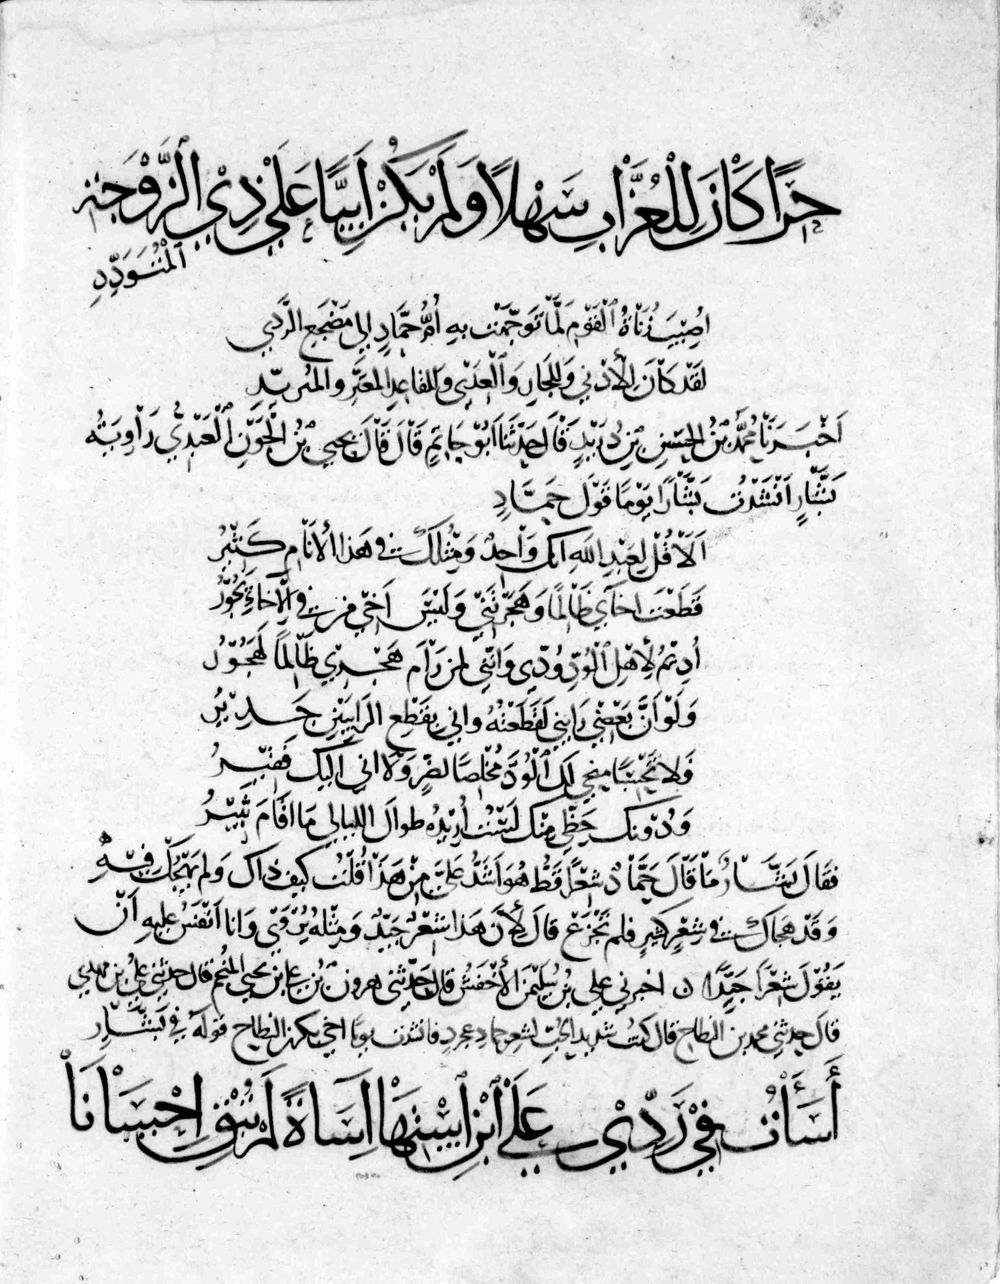 حِرًا كَانَ لِلْعُزَّابِ سَهْلًا وَلَمْ يَكُنْ أَبِيًّا عَلَى ذِي الزَّوْجَةِ
الْمُتَوَدِّدِ
أُصِيبَ زُنَاةُ الْقَوْمِ لَمَّا تَوَجَّهَتْ بِهِ أُمُّ حَمَّادٍ إِلَى مَضْجَعِ الرَّدِي
لَقَدْ كَانَ لِلْأَدْنَى وَلِلْجَارِ وَالْعِدَى وَلِلْقَاعِدِ الْمُعْتَرِّ وَالْمُتَزَيِّدِ
أَخْبَرَنَا مُحَمَّدُ بْنُ الْحَسَنِ بْنِ دُرَيْدٍ قَالَ حَدَّثَنَا أَبُو حَاتِمٍ قَالَ قَالَ يحيى بْنُ الْجَوْنِ الْعَبْدِيُّ رَاوِيَةُ
بَشَّارٍ أَنْشَدْتُ بَشَّارًا يَوْمًا قَوْلَ حَمَّادٍ
أَلَا قُلْ لِعَبْدِ اللهِ انك وَاحِدٌ وَمِثْلُكَ في هَذَا الْأَنَامِ كَثِيرُ
قَطَعْتَ اخائي ظَالِمًا وَهَجَرْتَنِي وَلَيْسَ أَخِي من في الْإِخَاءِ يَجُورُ
أُدِيمُ لِأَهْلِ الْوُدِّ وُدِّي وَإِنَّنِي لمن رَامَ هَجْرِي ظَالِمًا لَهَجُورُ
وَلَوْ أَنَّ بَعْضِي رَابَنِي لَقَطَعْتُهُ واني بِقَطْعِ الرَّائِبِينَ جَدِيرُ
فَلَا تَحْسَبَا منحي لَكَ الْوُدَّ مُخْلِصًا لعز وَلَا اني اليك فَقِيرُ
وَدُونَكَ حَظِّي مِنْكَ لَسْتُ أُرِيدُهُ طوالَ الليالي مَا اقَامَ ثَبِيرُ
فَقَالَ بَشَّارٌ مَا قَالَ حَمَّادٌ شِعْرًا قَطُّ هُوَ أَشَدُّ عَلَيَّ مِنْ هَذَا قُلْتُ كيف ذاك وَلم يَهْجُكَ فِيهِ
وَقَدْ هَجَاكَ في شِعْرٍ كَثِيرٍ فلم تَجْزَعْ قالَ لِأَنَّ هَذَا شِعْرٌ جَيِّدٌ وَمِثْلُهُ يُرْوَى وَانا أَنْفَسُ عليه أَنْ
يَقُولَ شِعْرًا جَيِّدًا ن اخبرني علي بْنُ سُلَيْمٰنَ الْأَخْفَشُ قال حَدَّثَنِي هرون بْنُ علي بن يحيى المنجم قال حدثني علي بن مهدي
قالَ حدثني محمد بن النطاح قال كنت شديد الحب لشعر حماد عجرد فانشدت يومًا اخي بكر بن النطاح قولَهُ فِي بَشَّارٍ
أَسَأْتُ فِي رَدِّي عَلَى ابْنِ اسْتِهَا إِسَاءَةً لَمْ تُبْقِ إِحْسَانَا